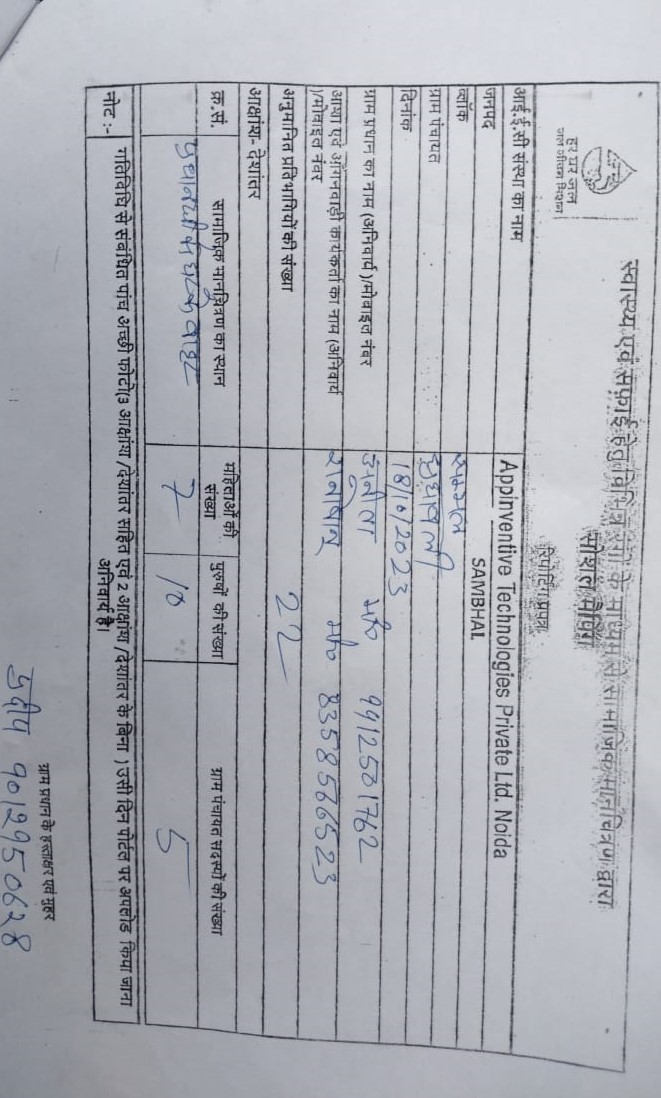 हर घर जल
जल जीवन मिशन
स्वास्थ्य एवं सफाई हेतु विभिन्न स्तरों के माध्यम से सामाजिक मानचित्रण द्वारा
सोशल मैपिंग
रिपोर्टिंग प्रपत्र
आई.ई.सी संस्था का नाम AppInventive Technologies Private Ltd. Noida
जनपद SAMBHAL
ब्लॉक सम्भल
ग्राम पंचायत
दिनांक 18/10/2023
ग्राम प्रधान का नाम (अनिवार्य)/मोबाइल नंबर अनीता मो० 9912501762
आशा एवं आँगनवाड़ी कार्यकर्ता का नाम (अनिवार्य)/मोबाइल नंबर मो० 8358576523
अनुमानित प्रतिभागियों की संख्या 22
आक्षांश- देशांतर
क्र.सं. सामाजिक मानचित्रण का स्थान महिलाओं की संख्या पुरुषों की संख्या ग्राम पंचायत सदस्यों की संख्या
7 10 5
नोट :- गतिविधि से संबंधित पांच अच्छी फोटो(3 आक्षांश /देशांतर सहित एवं 2 आक्षांश /देशांतर के बिना ) उसी दिन पोर्टल पर अपलोड किया जाना
अनिवार्य है।
ग्राम प्रधान के हस्ताक्षर एवं मुहर
9012950628